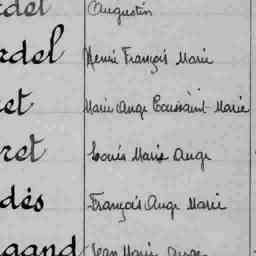 rdel Augustin
rdel Henri François Marie
ret Marie Ange Toussaint Marie
ret Louis Marie Ange
dès François Ange Marie
gand Jean Marie Ange